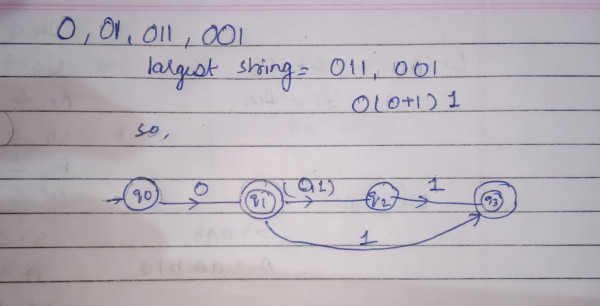 0, 01, 011, 001
largest string = 011, 001
0(0+1) 1
so,
q0 0 q1 (0,1) q2 1 q3
1